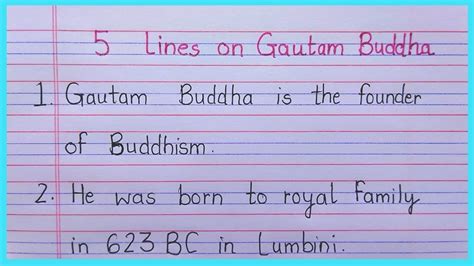 5 Lines on Gautam Buddha
1. Gautam Buddha is the founder
of Buddhism.
2. He was born to royal family
in 623 BC in Lumbini.